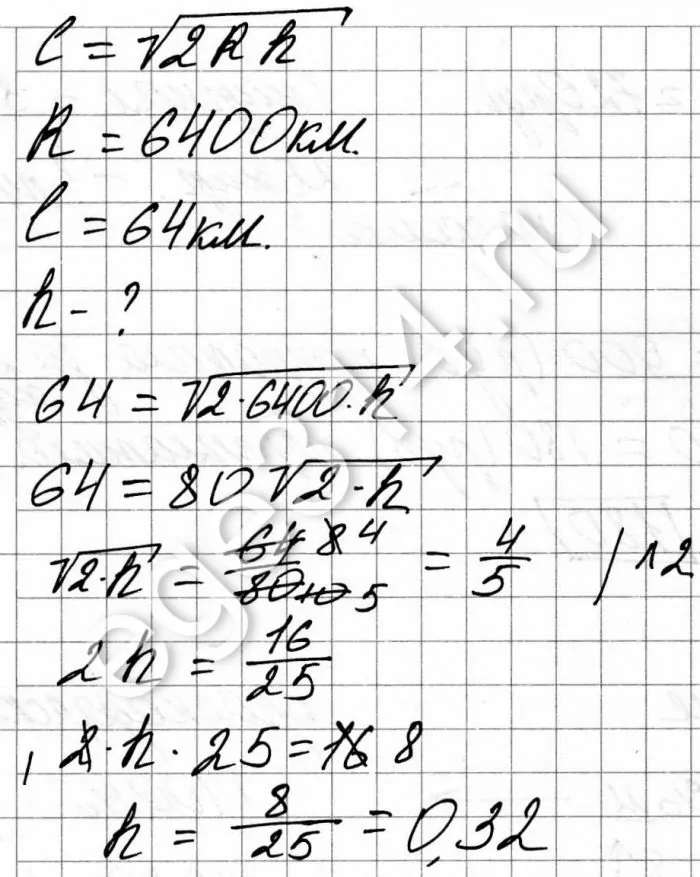 l = √2Rh
R = 6400км.
l = 64км.
h - ?
64 = √2·6400·h
64 = 80√2·h
√2·h = 64 8 4 / 80 10 5 = 4/5 | ^2
2h = 16/25
1 2·h·25 = 16 8
h = 8/25 = 0,32
ege314.ru